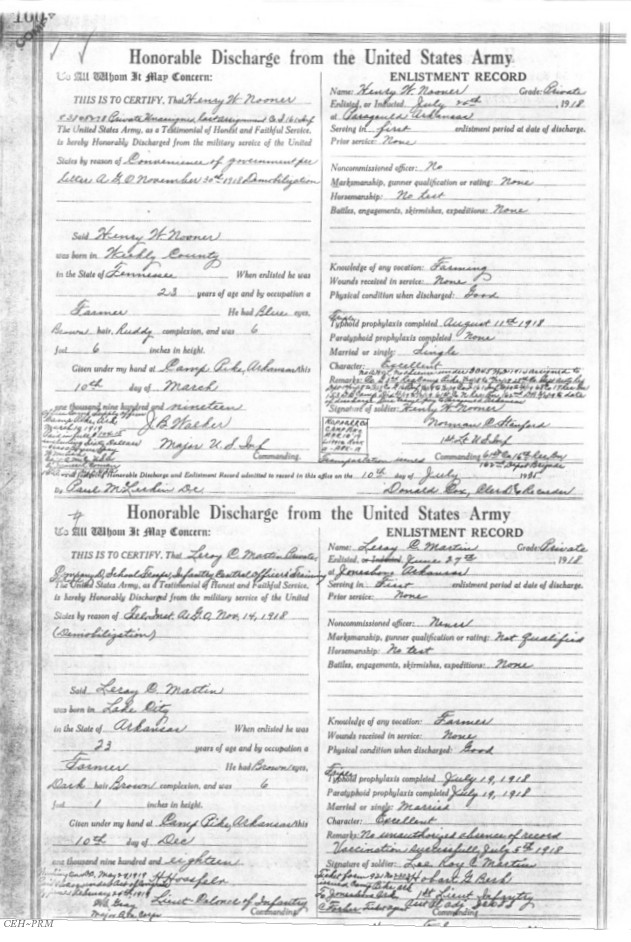 Honorable Discharge from the United States Army
To All Whom It May Concern:
THIS IS TO CERTIFY, That Henry W. Nooner
Private Unassigned last assignment Co. Inf
The United States Army, as a Testimonial of Honest and Faithful Service,
is hereby Honorably Discharged from the military service of the United
States by reason of Convenience of government per
letter A.G.O. November 30th 1918 Demobilization
Said Henry W. Nooner
was born in Weakly County
in the State of Tennessee When enlisted he was
23 years of age and by occupation a
Farmer He had Blue eyes,
Brown hair, Ruddy complexion, and was 6
feet 6 inches in height.
Given under my hand at Camp Pike, Arkansas this
10th day of March
one thousand nine hundred and nineteen
J.B. Walker
Major U.S. Inf
Commanding.
ENLISTMENT RECORD
Name: Henry W. Nooner Grade: Private
Enlisted, or Inducted July 25th, 1918
at Paragould Arkansas
Serving in first enlistment period at date of discharge.
Prior service: None
Noncommissioned officer: No
Marksmanship, gunner qualification or rating: None
Horsemanship: No test
Battles, engagements, skirmishes, expeditions: None
Knowledge of any vocation: Farming
Wounds received in service: None
Physical condition when discharged: Good
Typhoid prophylaxis completed August 11th 1918
Paratyphoid prophylaxis completed None
Married or single: Single
Character: Excellent
Remarks:
Signature of soldier: Henry W. Nooner
Norman P. Stanford
1st Lt U.S. Inf
Transportation issued Commanding
Honorable Discharge and Enlistment Record admitted to record in this office on the 10th day of July
by Paul McLerkin D.C. Donald Cox, Clerk & Recorder
Honorable Discharge from the United States Army
To All Whom It May Concern:
THIS IS TO CERTIFY, That Leroy C. Martin Private
Company School Troops, Infantry Central Officers Training
The United States Army, as a Testimonial of Honest and Faithful Service,
is hereby Honorably Discharged from the military service of the United
States by reason of Tel. Inst. A.G.O. Nov. 14, 1918
(Demobilization)
Said Leroy C. Martin
was born in Lake City
in the State of Arkansas When enlisted he was
23 years of age and by occupation a
Farmer He had Brown eyes,
Dark hair, Brown complexion, and was 6
feet 1 inches in height.
Given under my hand at Camp Pike, Arkansas this
10th day of Dec
one thousand nine hundred and eighteen
Lieut Colonel of Infantry
Commanding
ENLISTMENT RECORD
Name: Leroy C. Martin Grade: Private
Enlisted, or Inducted June 27th, 1918
at Jonesboro Arkansas
Serving in First enlistment period at date of discharge.
Prior service: None
Noncommissioned officer: Never
Marksmanship, gunner qualification or rating: Not Qualified
Horsemanship: No test
Battles, engagements, skirmishes, expeditions: None
Knowledge of any vocation: Farmer
Wounds received in service: None
Physical condition when discharged: Good
Typhoid prophylaxis completed July 19, 1918
Paratyphoid prophylaxis completed July 19, 1918
Married or single: Married
Character: Excellent
Remarks: No unauthorized absence of record
Vaccination successful, July 5th 1918
Signature of soldier: Lee Roy C. Martin
Hobart G.
1st Lieut Infantry
Commanding
CEH~PRM